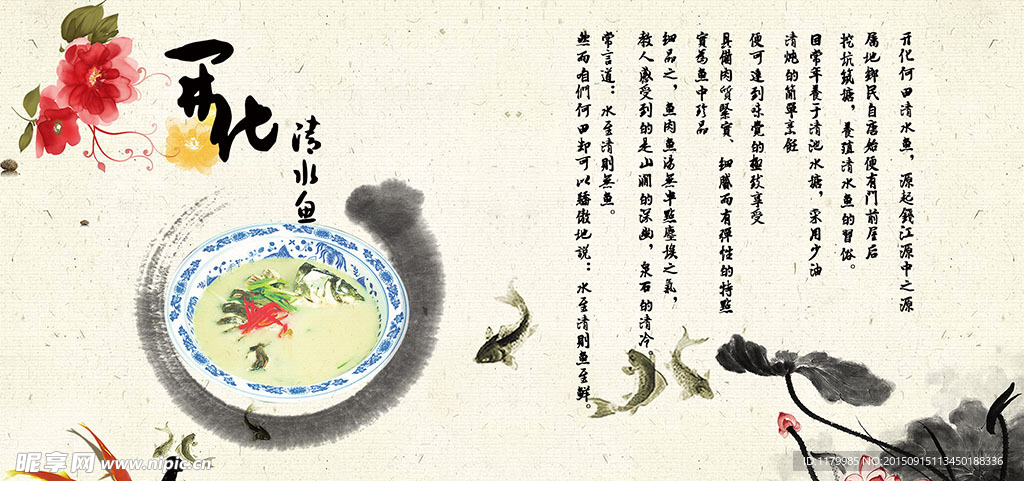 開化
清水鱼
亓化何田清水鱼，源起錢江源中之源
属地鄉民自唐始便有門前屋后
挖坑筑塘，養殖清水鱼的習俗。
日常草養于清池水塘，采用少油
清炖的簡單烹飪
便可達到味覺的極致享受
具備肉質緊實、細膩而有彈性的特點
實為鱼中珍品
細品之，鱼肉鱼湯無半點塵埃之氣，
教人感受到的是山澗的深幽，泉石的清冷。
常言道：水至清則無鱼。
然而咱們何田却可以驕傲地説：水至清則鱼至鮮。
昵享网 www.nipic.cn
ID:1179985 NO:20150915113450188336